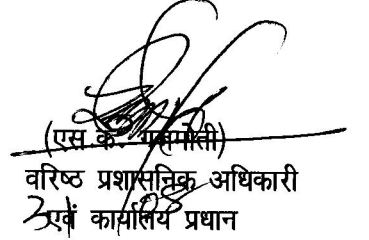 (एस.के. गजमोती)
वरिष्ठ प्रशासनिक अधिकारी
एवं कार्यालय प्रधान